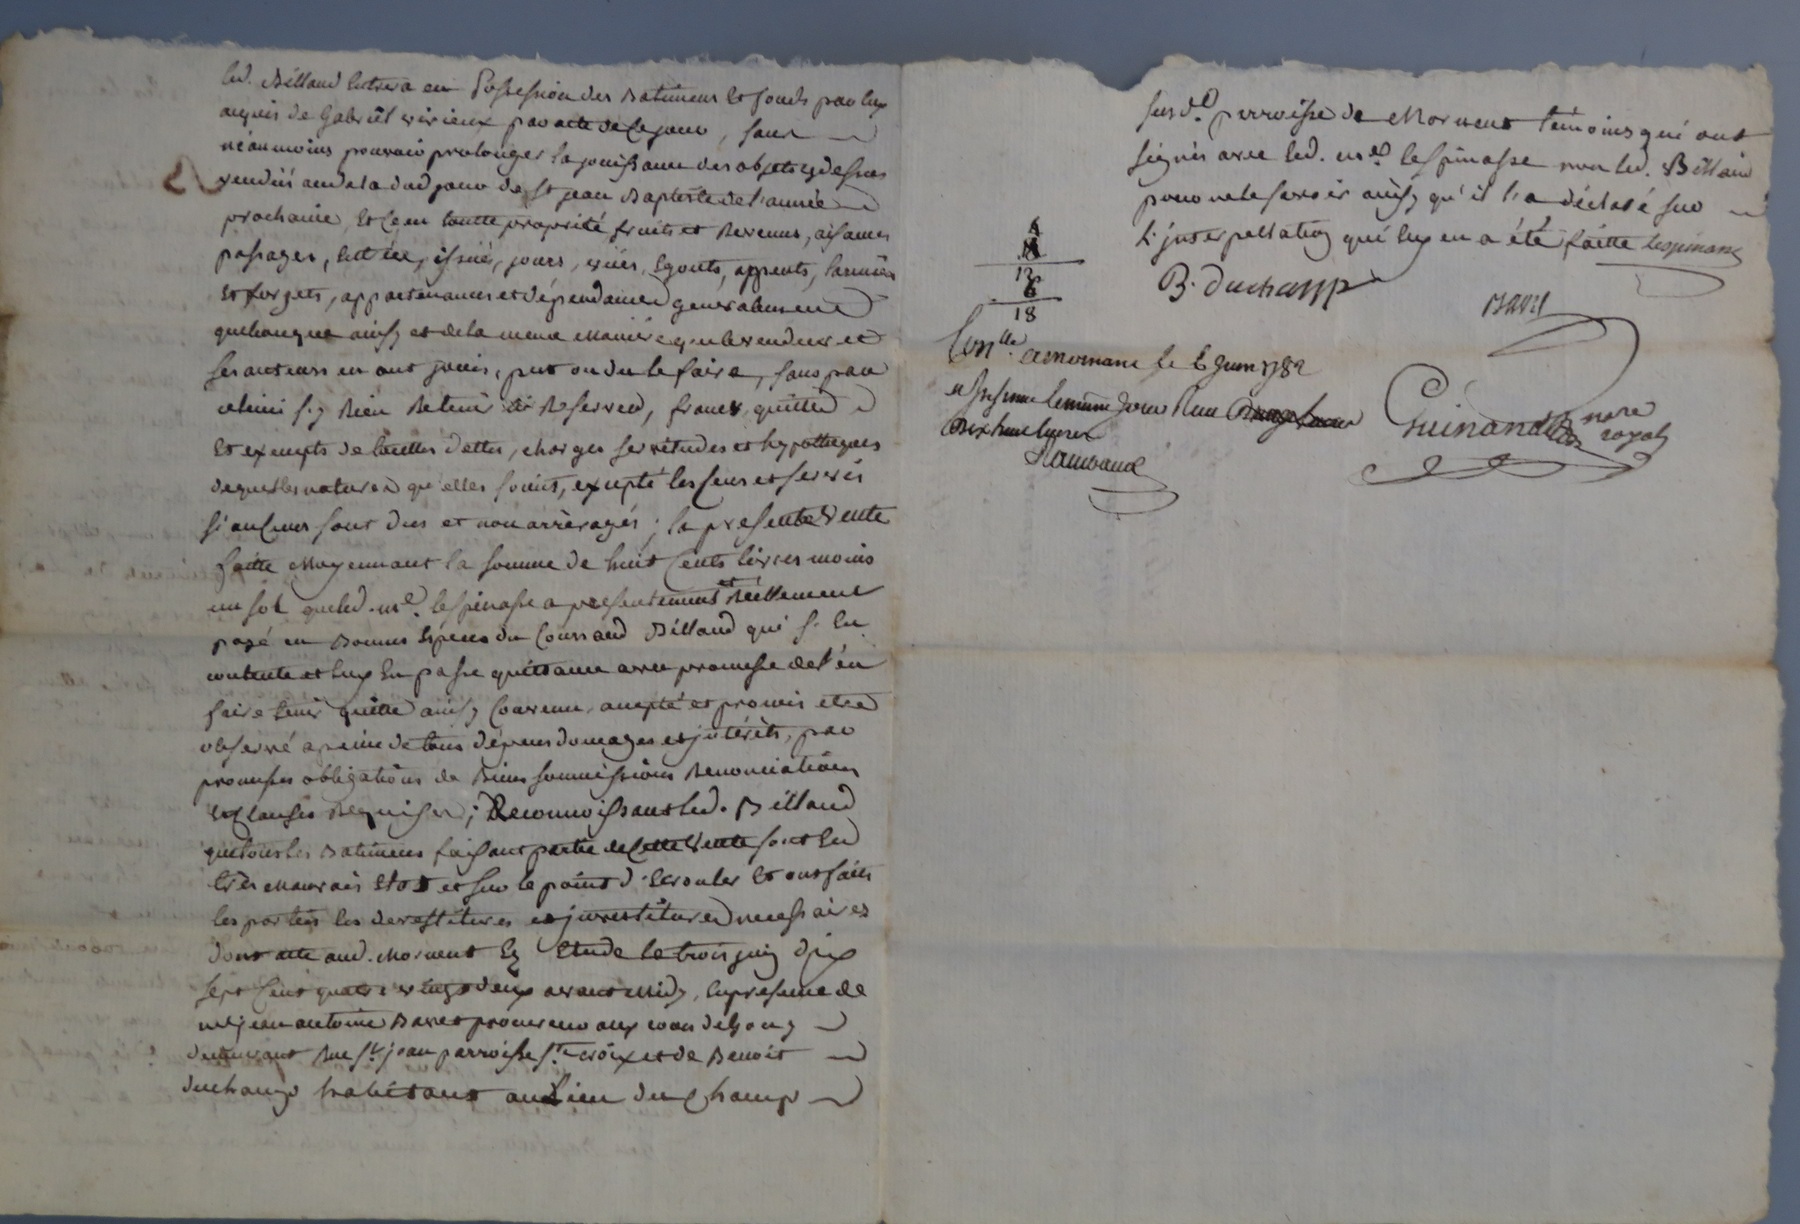 led. Billaud entrera en Possession des Batimens et fonds par luy
acquis de Gabriel virieux par acte de ce jour, sans
néanmoins pouvoir prolonger la jouissance des objets cy dessus
vendus audela dud. jour de St jean Baptiste de l'année
prochaine, et ce en toutte propriété fruits et Revenus, aisances
passages, entrée, issues, jours, vües, Egouts, appents, larmiers
et forgets, appartenances et dépendances generalement
quelconques ainsy et de la meme maniere que le vendeur et
ses auteurs en ont jouis, put ou du le faire, sans par
celui s'y Rien Retenir ni Reserver, francs, quittes
et exempts de touttes dettes, charges servitudes et hypotheques
de quelles natures qu'elles soient, excepté les cens et servis
si aucuns sont dus et non arréragés; la presente Vente
faitte Moyennant la somme de huit Cents livres moins
un sol que led. me. lespinasse a presentement et Réellement
payé en Bonnes Espèces du Cours aud Billaud qui s'en
contente et luy En passe quittance avec promesse de l'en
faire tenir quitte ainsy Convenu, accepté et promis etre
observé a peine de tous dépens domages et intérêts, par
promesses obligations de Biens soumissions Renonciations
et Clauses Requises; Reconnoissant led. Billaud
que tous les Batimens faisant partie de Cette Vente sont En
très mauvais Etat et sur le point d'Ecrouler et ont fait
les parties les devestitures et investitures necessaires
dont acte aud. Mornant En Etude le trois juin dix
sept Cent quatre vingt deux avant midy, En presence de
me jean antoine Baret procureur aux cours de Lyon
demeurant Rue St. jean parroisse Ste croix et de Benoit
duchamp habitant au Lieu du Champ
susd. parroisse de Mornant témoins qui ont
signés avec led. me. lespinasse non led. Billaud
pour ne le savoir ainsy qu'il l'a déclaré sur
l'interpellation qui luy en a été faitte Lespinasse
B. duchamp
12
6
18
Conlle. a mornant le 6 Juin 1782
dix huit livres
Guinand nore
royal